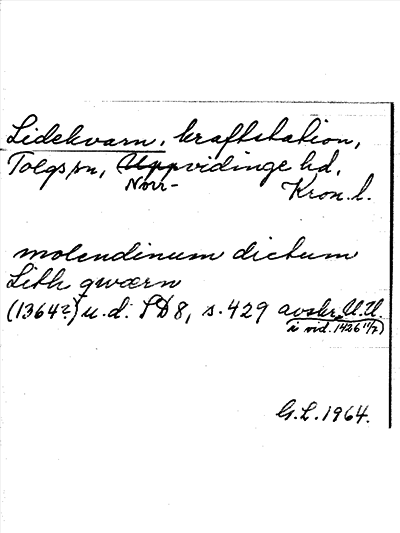 Lidekvarn, kraftstation,
Tolgs sn, Uppvidinge hd,
Norr-
Kron. l.
molendinum dictum
Lith qwærn
(1364?) u.d. SD 8, s. 429 avskr. U.U.
i vid. 1426 11/7)
G.L. 1964.